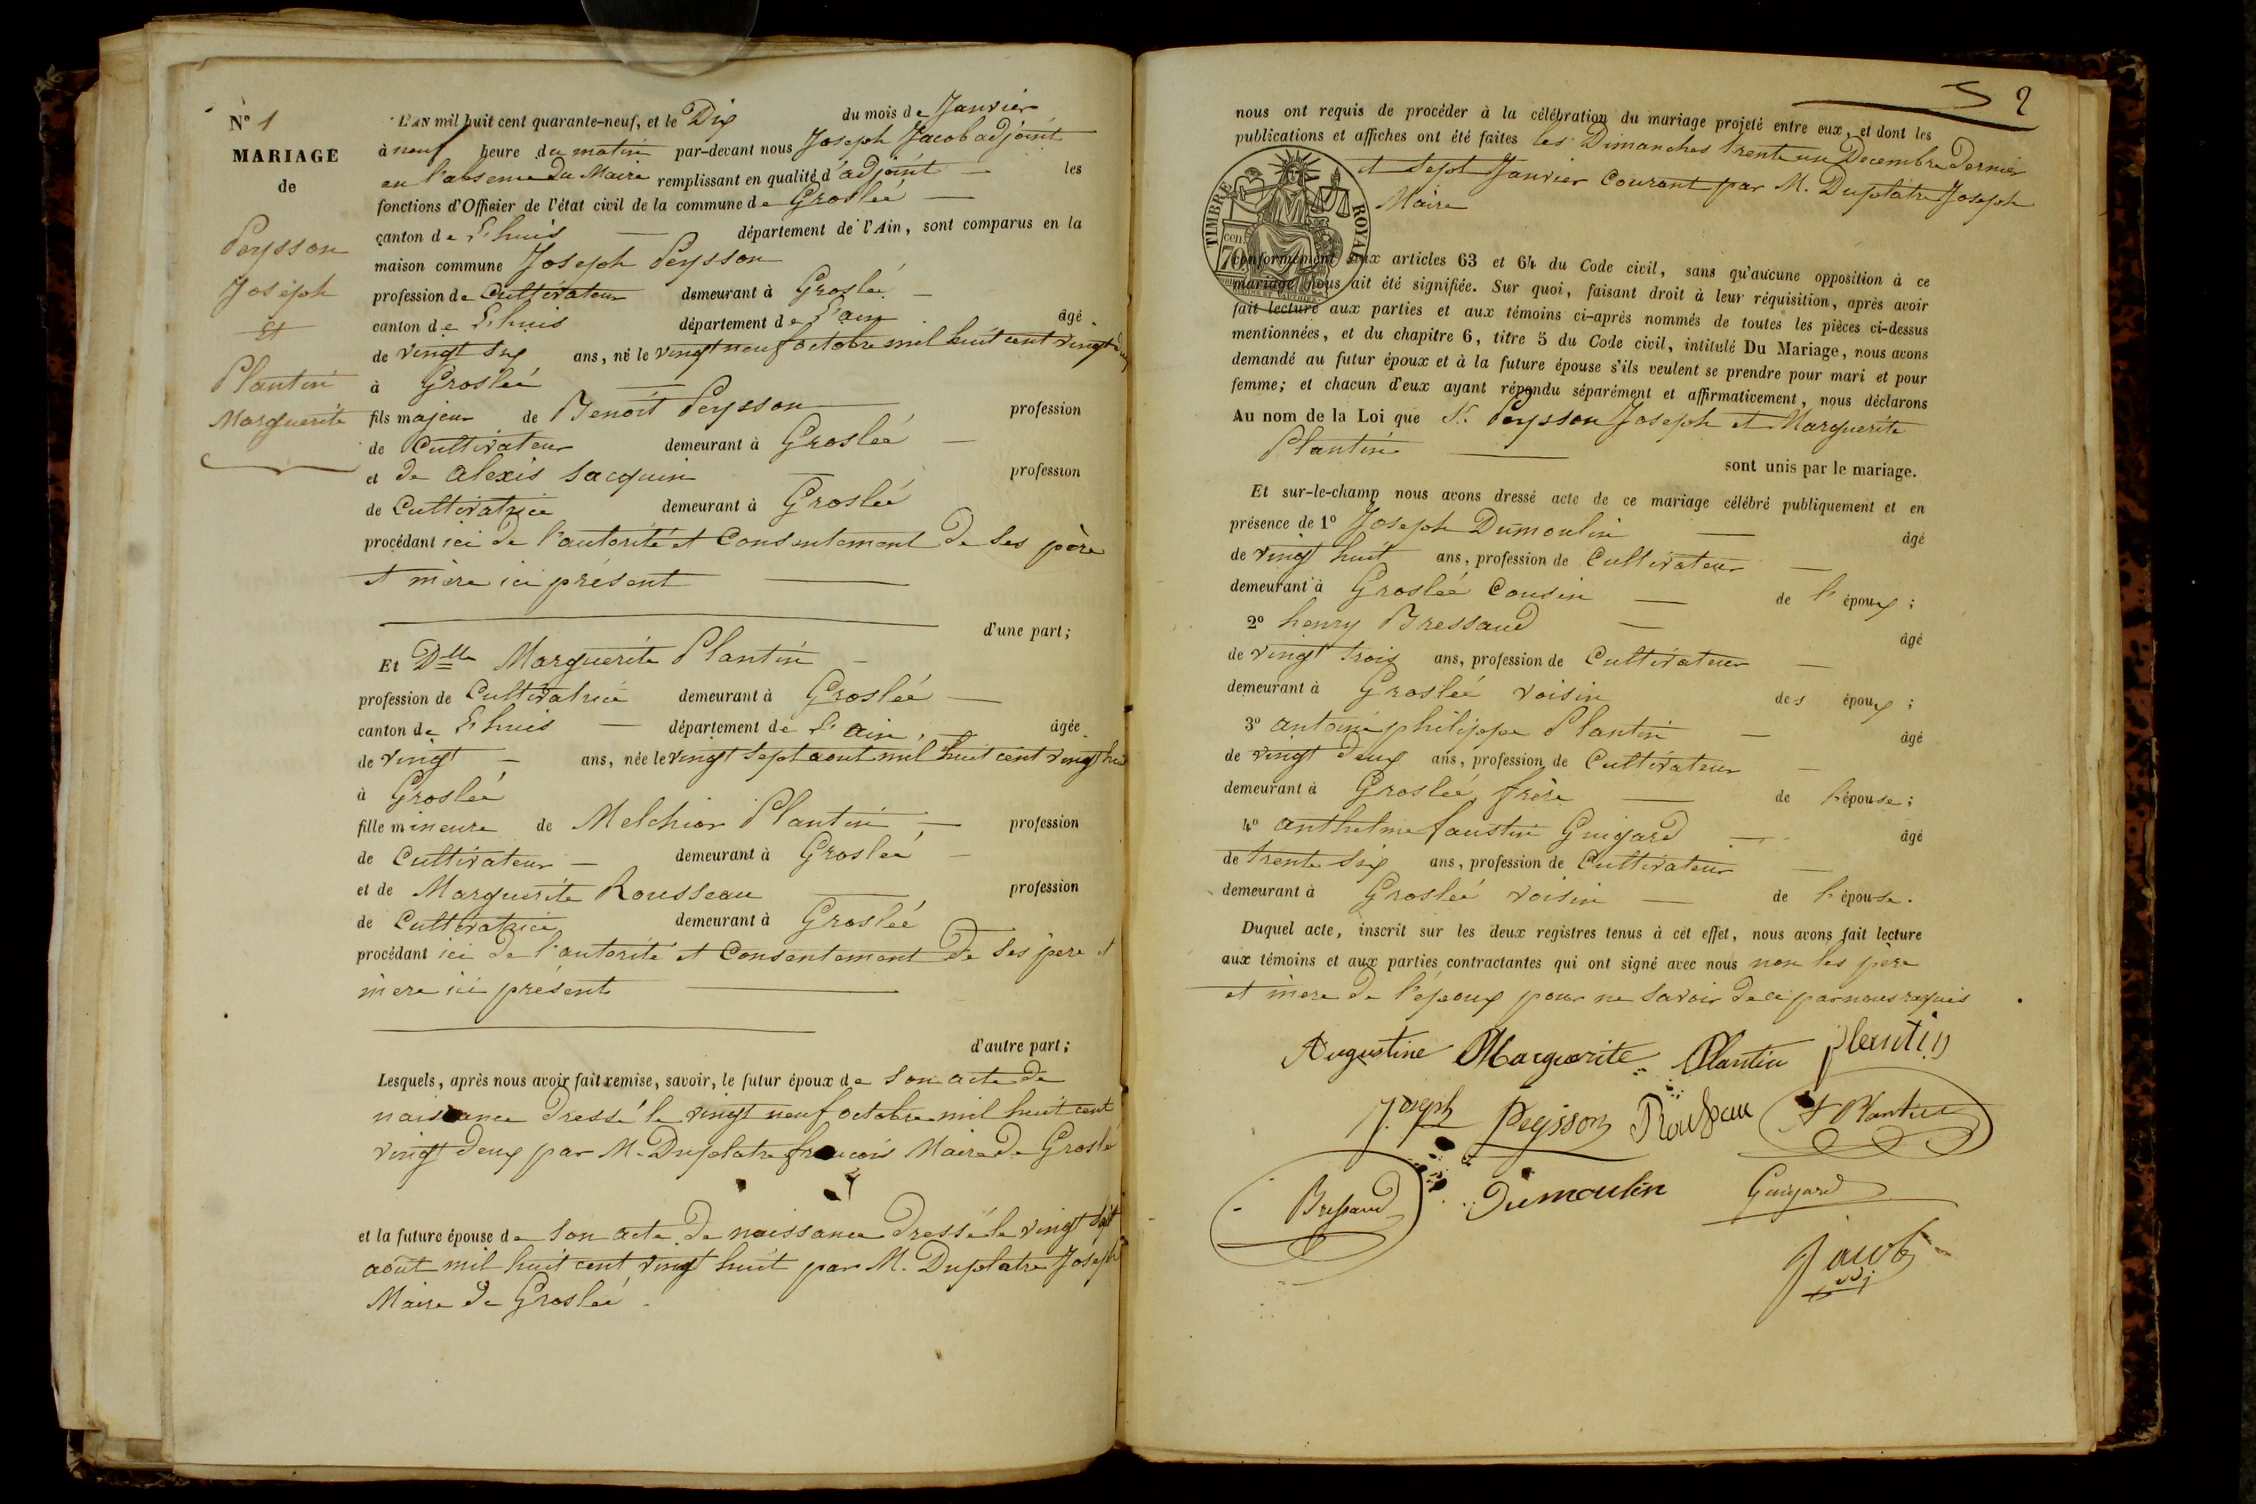 N° 1
MARIAGE
de
Peysson
Joseph
et
Plantin
Marguerite
L'AN mil huit cent quarante-neuf, et le Dix du mois de Janvier
à neuf heure du matin par-devant nous Joseph Jacob adjoint
en l'absence du Maire remplissant en qualité d'adjoint les
fonctions d'Officier de l'état civil de la commune de Groslée
canton de Lhuis département de l'Ain, sont comparus en la
maison commune Joseph Peysson
profession de Cultivateur demeurant à Groslée
canton de Lhuis département de L'ain âgé
de vingt six ans, né le vingt neuf octobre mil huit cent vingt deux
à Groslée
fils majeur de Benoit Peysson profession
de Cultivateur demeurant à Groslée
et de alexis Jacquin profession
de Cultivatrice demeurant à Groslée
procédant ici de l'autorité et Consentement de ses père
et mère ici présent
d'une part;
Et Dlle Marguerite Plantin
profession de Cultivatrice demeurant à Groslée
canton de Lhuis département de L'ain, âgée
de vingt ans, née le vingt sept aout mil huit cent vingt huit
à Groslée
fille mineure de Melchior Plantin profession
de Cultivateur demeurant à Groslée
et de Marguerite Rousseau profession
de Cultivatrice demeurant à Groslée
procédant ici de l'autorité et Consentement de ses père et
mère ici présent
d'autre part;
Lesquels, après nous avoir fait remise, savoir, le futur époux de son acte de
naissance dressé le vingt neuf octobre mil huit cent
vingt deux par M. Duplatre francois Maire de Groslé
et la future épouse de son acte de naissance dressé le vingt sept
aout mil huit cent vingt huit par M. Duplatre Joseph
Maire de Groslée
2
nous ont requis de procéder à la célébration du mariage projeté entre eux, et dont les
publications et affiches ont été faites les Dimanches trente un Decembre dernier
et sept Janvier Courant par M. Duplatre Joseph
Maire
TIMBRE ROYAL
cen.
70
conformément aux articles 63 et 64 du Code civil, sans qu'aucune opposition à ce
mariage nous ait été signifiée. Sur quoi, faisant droit à leur réquisition, après avoir
fait lecture aux parties et aux témoins ci-après nommés de toutes les pièces ci-dessus
mentionnées, et du chapitre 6, titre 5 du Code civil, intitulé Du Mariage, nous avons
demandé au futur époux et à la future épouse s'ils veulent se prendre pour mari et pour
femme; et chacun d'eux ayant répondu séparément et affirmativement, nous déclarons
Au nom de la Loi que Sr. Peysson Joseph et Marguerite
Plantin
sont unis par le mariage.
Et sur-le-champ nous avons dressé acte de ce mariage célébré publiquement et en
présence de 1° Joseph Dumoulin âgé
de vingt huit ans, profession de Cultivateur
demeurant à Groslée Cousin de l'époux;
2° henry Bressaud âgé
de vingt trois ans, profession de Cultivateur
demeurant à Groslée voisin des époux;
3° antoine philippe Plantin âgé
de vingt deux ans, profession de Cultivateur
demeurant à Groslée, frère de l'épouse;
4° anthelme faustin Guigard âgé
de trente six ans, profession de Cultivateur
demeurant à Groslée voisin de l'épouse.
Duquel acte, inscrit sur les deux registres tenus à cet effet, nous avons fait lecture
aux témoins et aux parties contractantes qui ont signé avec nous non les père
et mère de l'époux pour ne savoir de ce par nous requis
Augustine Marguerite Plantin plantin
Joseph Peysson Rousseau A Plantin
Bressaud Dumoulin Guigard
Jacob
adj